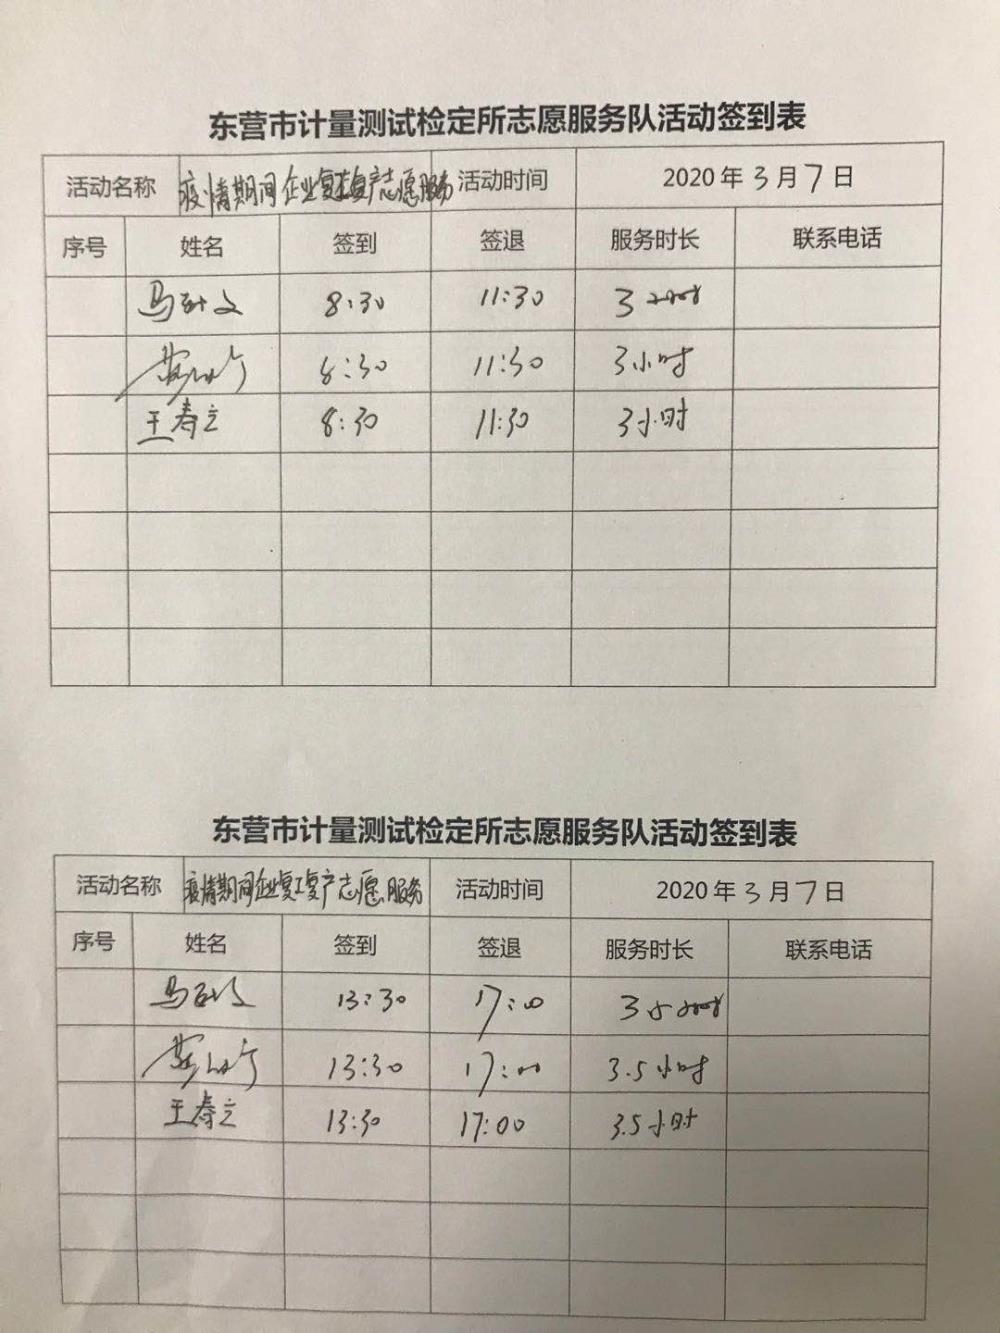 东营市计量测试检定所志愿服务队活动签到表
活动名称 疫情期间企业复工复产志愿服务 活动时间 2020年3月7日
序号 姓名 签到 签退 服务时长 联系电话
8:30 11:30 3小时
8:30 11:30 3小时
王寿立 8:30 11:30 3小时
东营市计量测试检定所志愿服务队活动签到表
活动名称 疫情期间企业复工复产志愿服务 活动时间 2020年3月7日
序号 姓名 签到 签退 服务时长 联系电话
13:30 17:00
13:30 17:00 3.5小时
王寿立 13:30 17:00 3.5小时